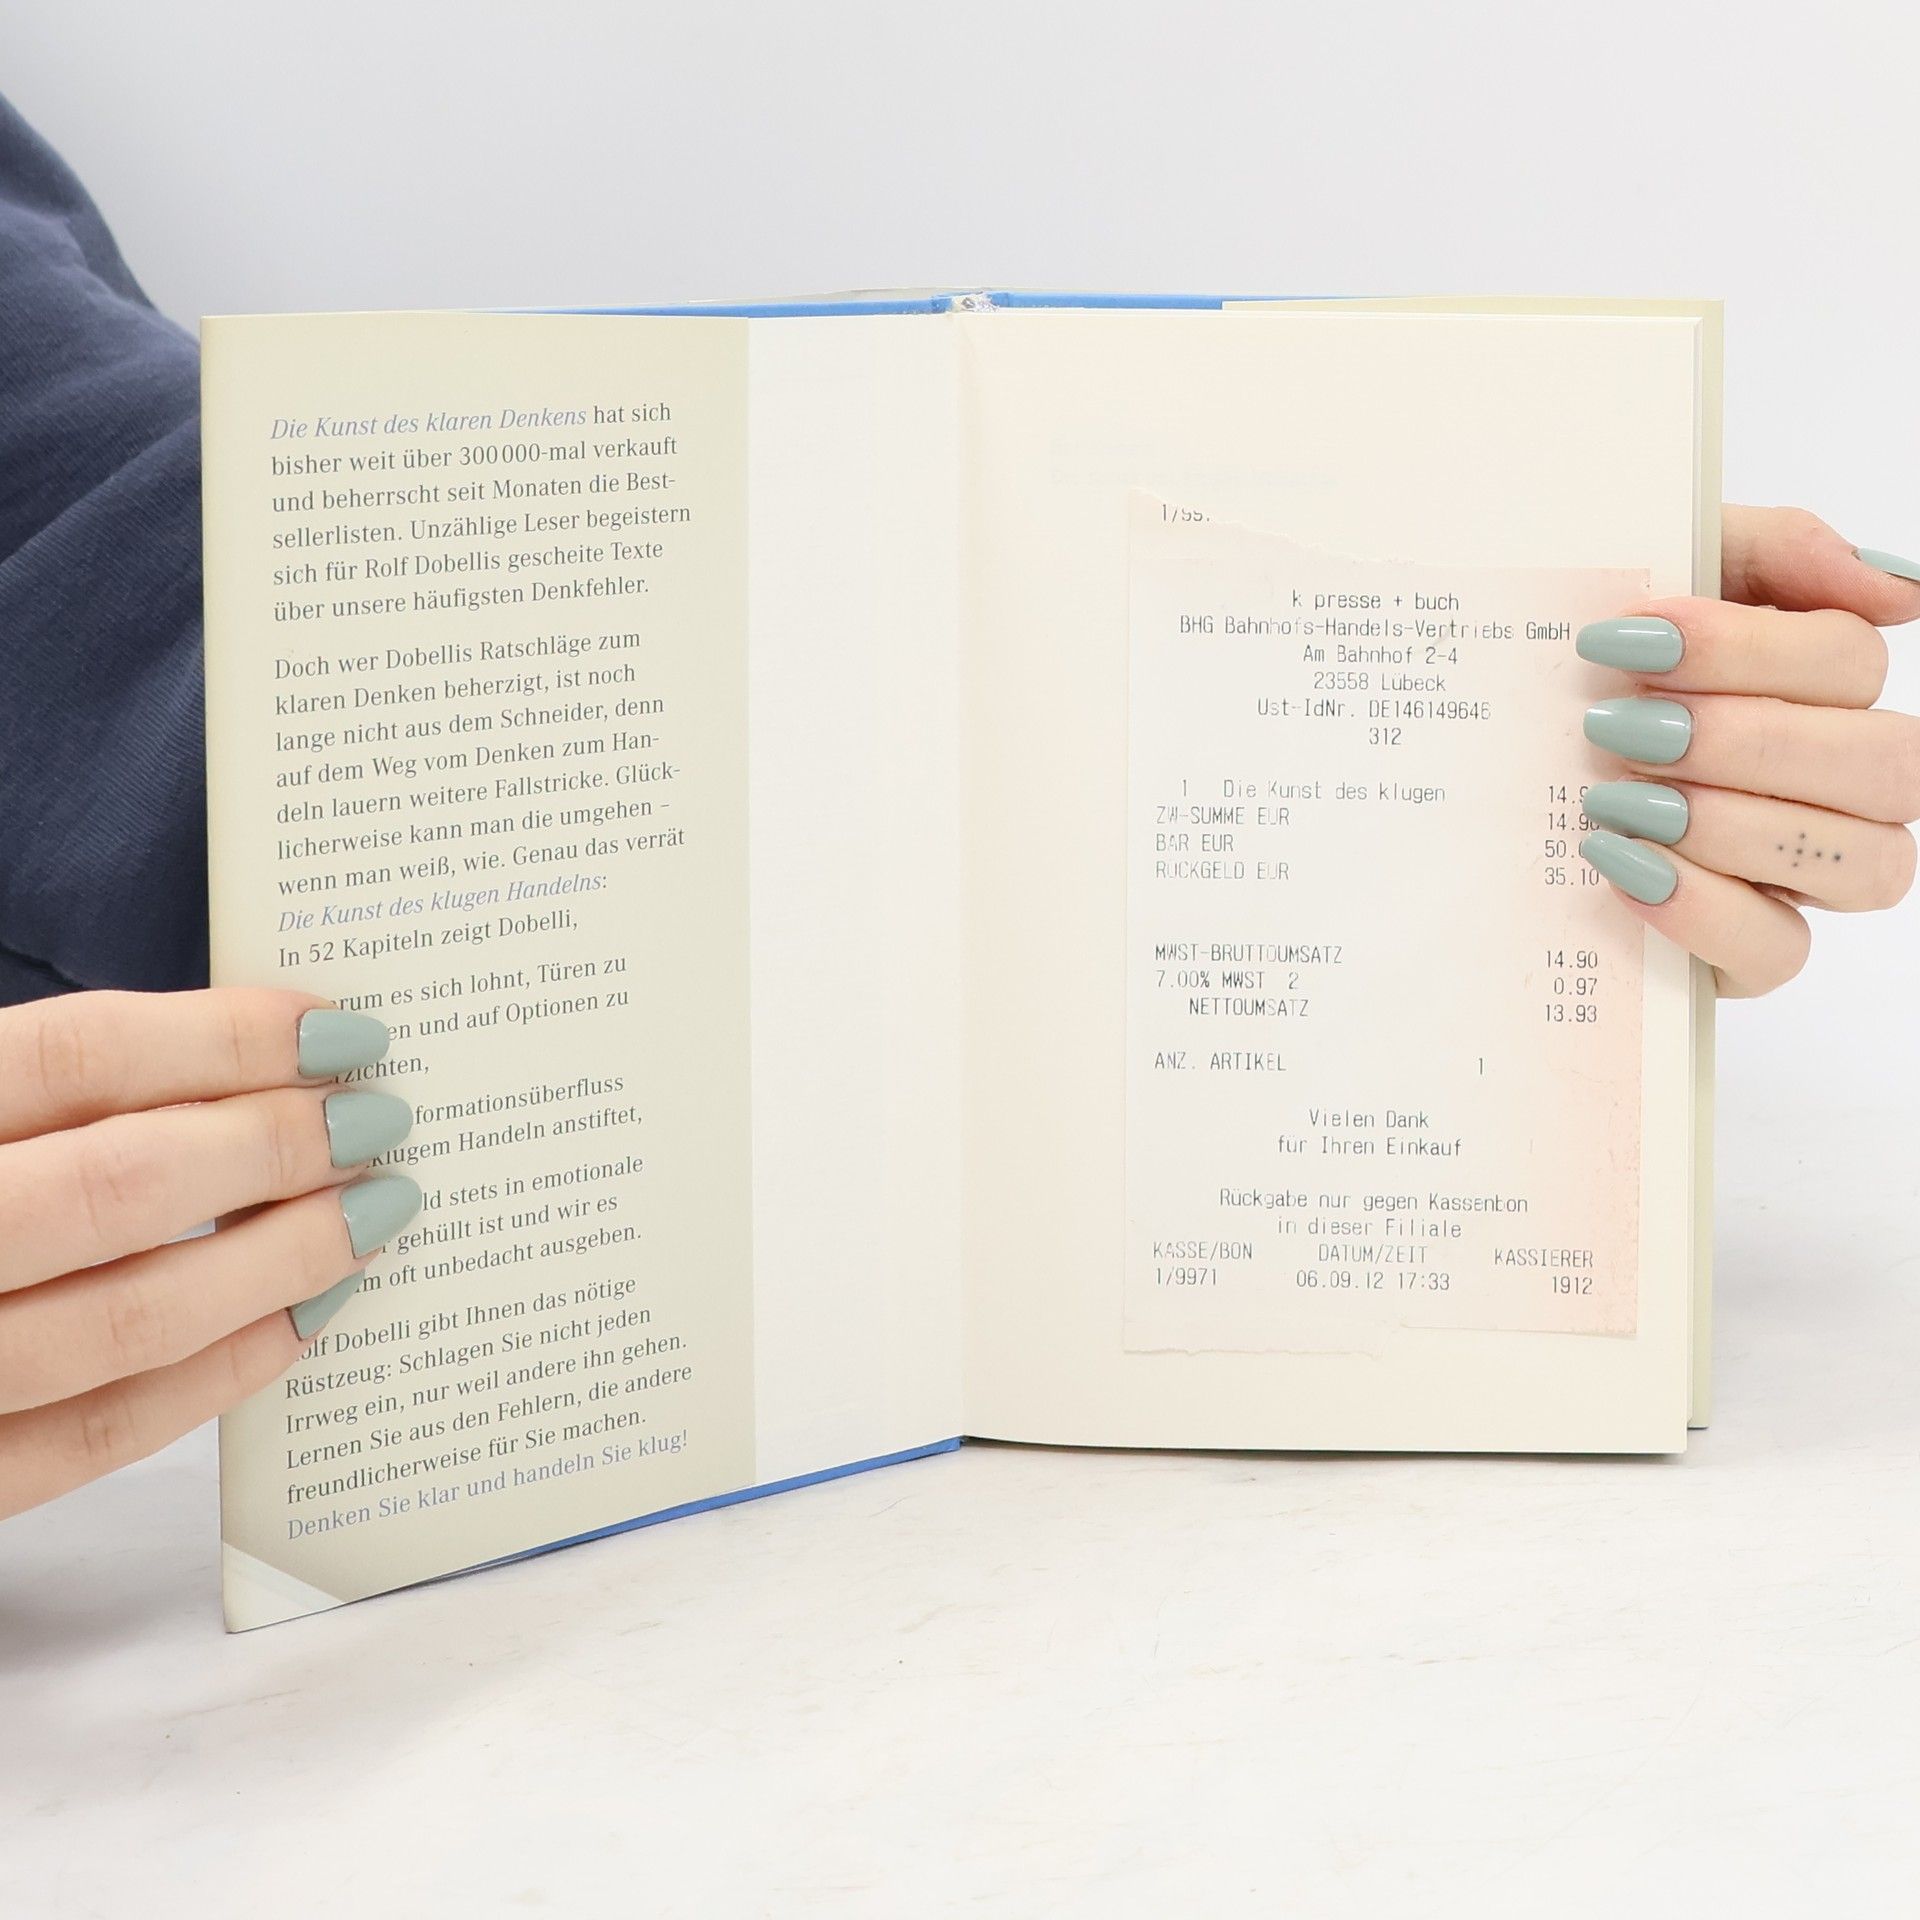 Die Kunst des klaren Denkens hat sich
bisher weit über 300 000-mal verkauft
und beherrscht seit Monaten die Best-
sellerlisten. Unzählige Leser begeistern
sich für Rolf Dobellis gescheite Texte
über unsere häufigsten Denkfehler.
Doch wer Dobellis Ratschläge zum
klaren Denken beherzigt, ist noch
lange nicht aus dem Schneider, denn
auf dem Weg vom Denken zum Han-
deln lauern weitere Fallstricke. Glück-
licherweise kann man die umgehen –
wenn man weiß, wie. Genau das verrät
Die Kunst des klugen Handelns:
In 52 Kapiteln zeigt Dobelli,
es sich lohnt, Türen zu
und auf Optionen zu
klugem Handeln anstiftet,
stets in emotionale
gehüllt ist und wir es
oft unbedacht ausgeben.
Dobelli gibt Ihnen das nötige
Rüstzeug: Schlagen Sie nicht jeden
Irrweg ein, nur weil andere ihn gehen.
Lernen Sie aus den Fehlern, die andere
freundlicherweise für Sie machen.
Denken Sie klar und handeln Sie klug!
k presse + buch
BHG Bahnhofs-Handels-Vertriebs GmbH
Am Bahnhof 2-4
23558 Lübeck
Ust-IdNr. DE146149646
312
1 Die Kunst des klugen
ZW-SUMME EUR 14.90
BAR EUR
RÜCKGELD EUR 35.10
MWST-BRUTTOUMSATZ 14.90
7.00% MWST 2 0.97
NETTOUMSATZ 13.93
ANZ. ARTIKEL 1
Vielen Dank
für Ihren Einkauf
Rückgabe nur gegen Kassenbon
in dieser Filiale
KASSE/BON DATUM/ZEIT KASSIERER
1/9971 06.09.12 17:33 1912